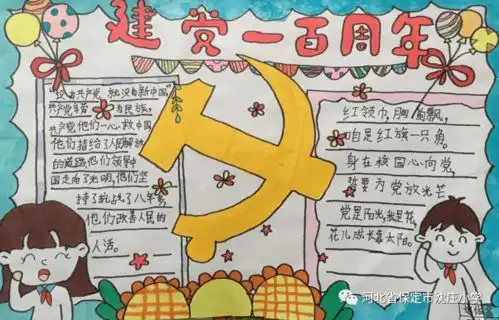 建党一百周年
没有共产党 就没有新中国
共产党辛劳为民族,
共产党他们一心救中国
他们指给了人民解放
的道路他们领导中
国走向了光明,他们坚
持了抗战了八年多
他们改善人民的
人活。
红领巾,胸前飘,
咱是红旗一只角。
身在校园心向党,
誓要为党放光芒
党是阳光,我是花,
花儿成长靠太阳。
河北省保定市沈庄小学